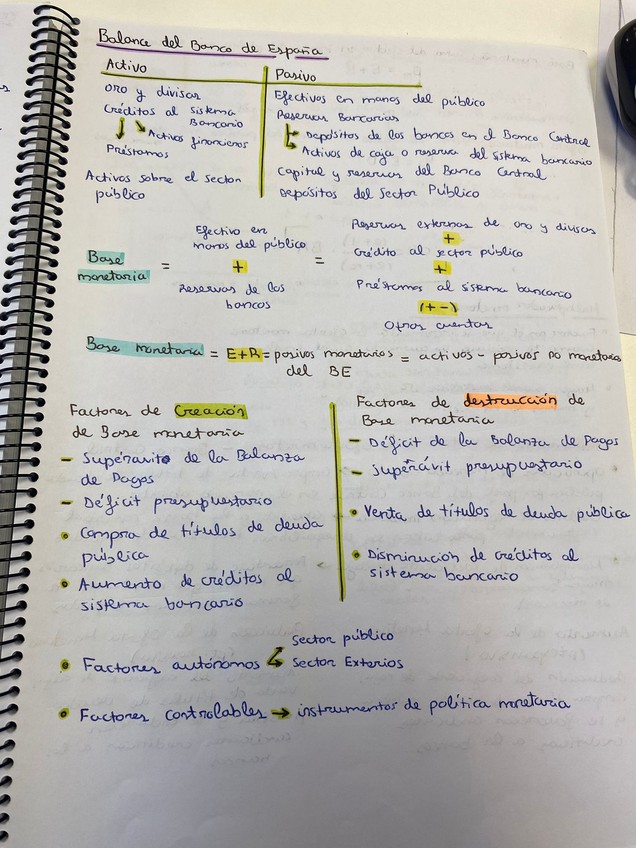 Balance del Banco de España
Activo
Oro y divisas
Créditos al sistema
Bancario
Activos financieros
Préstamos
Activos sobre el sector
público
Pasivo
Efectivos en manos del público
Reservas Bancarias
Depósitos de los bancos en el Banco Central
Activos de caja o reserva del sistema bancario
Capital y reservas del Banco Central
Depósitos del Sector Público
Base
monetaria
=
Efectivo en
manos del público
+
Reservas de los
bancos
=
Reservas externas de oro y divisas
+
Crédito al sector público
+
Préstamos al sistema bancario
(+-)
Otras cuentas
Base monetaria = E+R = pasivos monetarios = activos - pasivos no monetarios
del BE
Factores de Creación
de Base monetaria
- Superávito de la Balanza
de Pagos
- Déficit presupuestario
• Compra de títulos de deuda
pública
• Aumento de créditos al
sistema bancario
Factores de destrucción de
Base monetaria
- Déficit de la Balanza de Pagos
- superávit presupuestario
• Venta de títulos de deuda pública
• Disminución de créditos al
sistema bancario
• Factores autónomos
sector público
Sector Exterios
• Factores controlables → instrumentos de política monetaria